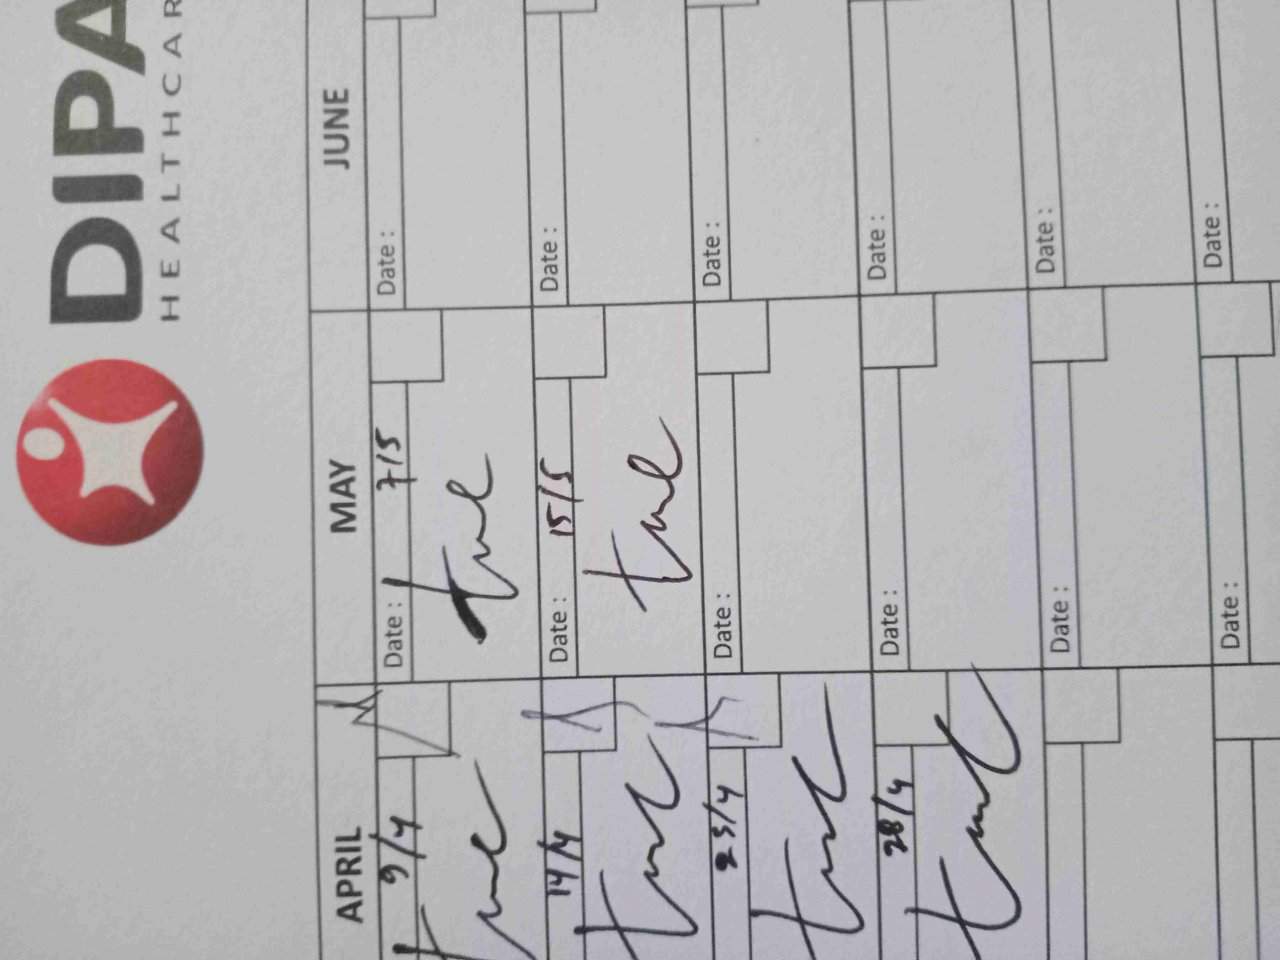 DIPA
HEALTHCAR
APRIL MAY JUNE
9/4 Date : 7/5 Date :
14/4 Date : 15/5 Date :
23/4 Date : Date :
28/4 Date : Date :
Date : Date :
Date : Date :